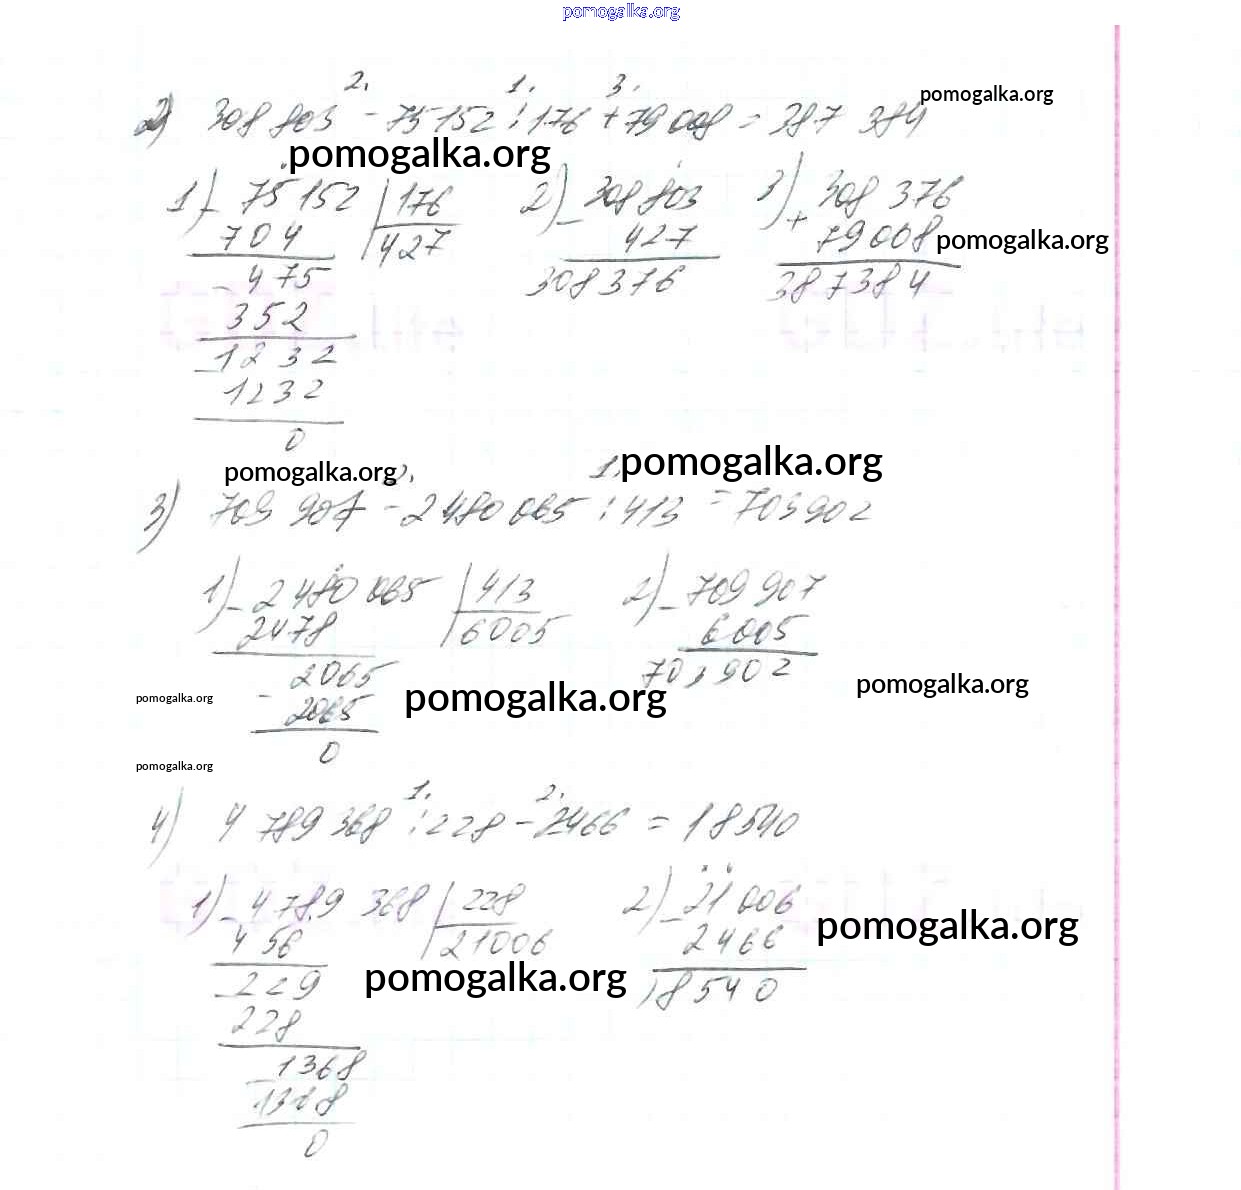 pomogalka.org
2. 1. 3.
2) 308 803 - 75 152 : 176 + 79 008 = 387 384
pomogalka.org
pomogalka.org
1) - 75 152 | 176 2) - 308 803 3) 308 376
704 427 427 + 79 008
pomogalka.org
- 475 308376 387384
352
- 1232
1232
0
pomogalka.org 2. 1. pomogalka.org
3) 709 907 - 2 480 065 : 413 = 703902
1) - 2 480 065 | 413 2) - 709 907
2478 6005 6 005
2065 703902
pomogalka.org - 2065 pomogalka.org pomogalka.org
0
pomogalka.org
1. 2.
4) 4 789 368 : 228 - 2466 = 18540
1) - 4 789 368 | 228 2) - 21 006
456 21006 2466
pomogalka.org
- 229 pomogalka.org 18540
228
- 1368
1368
0